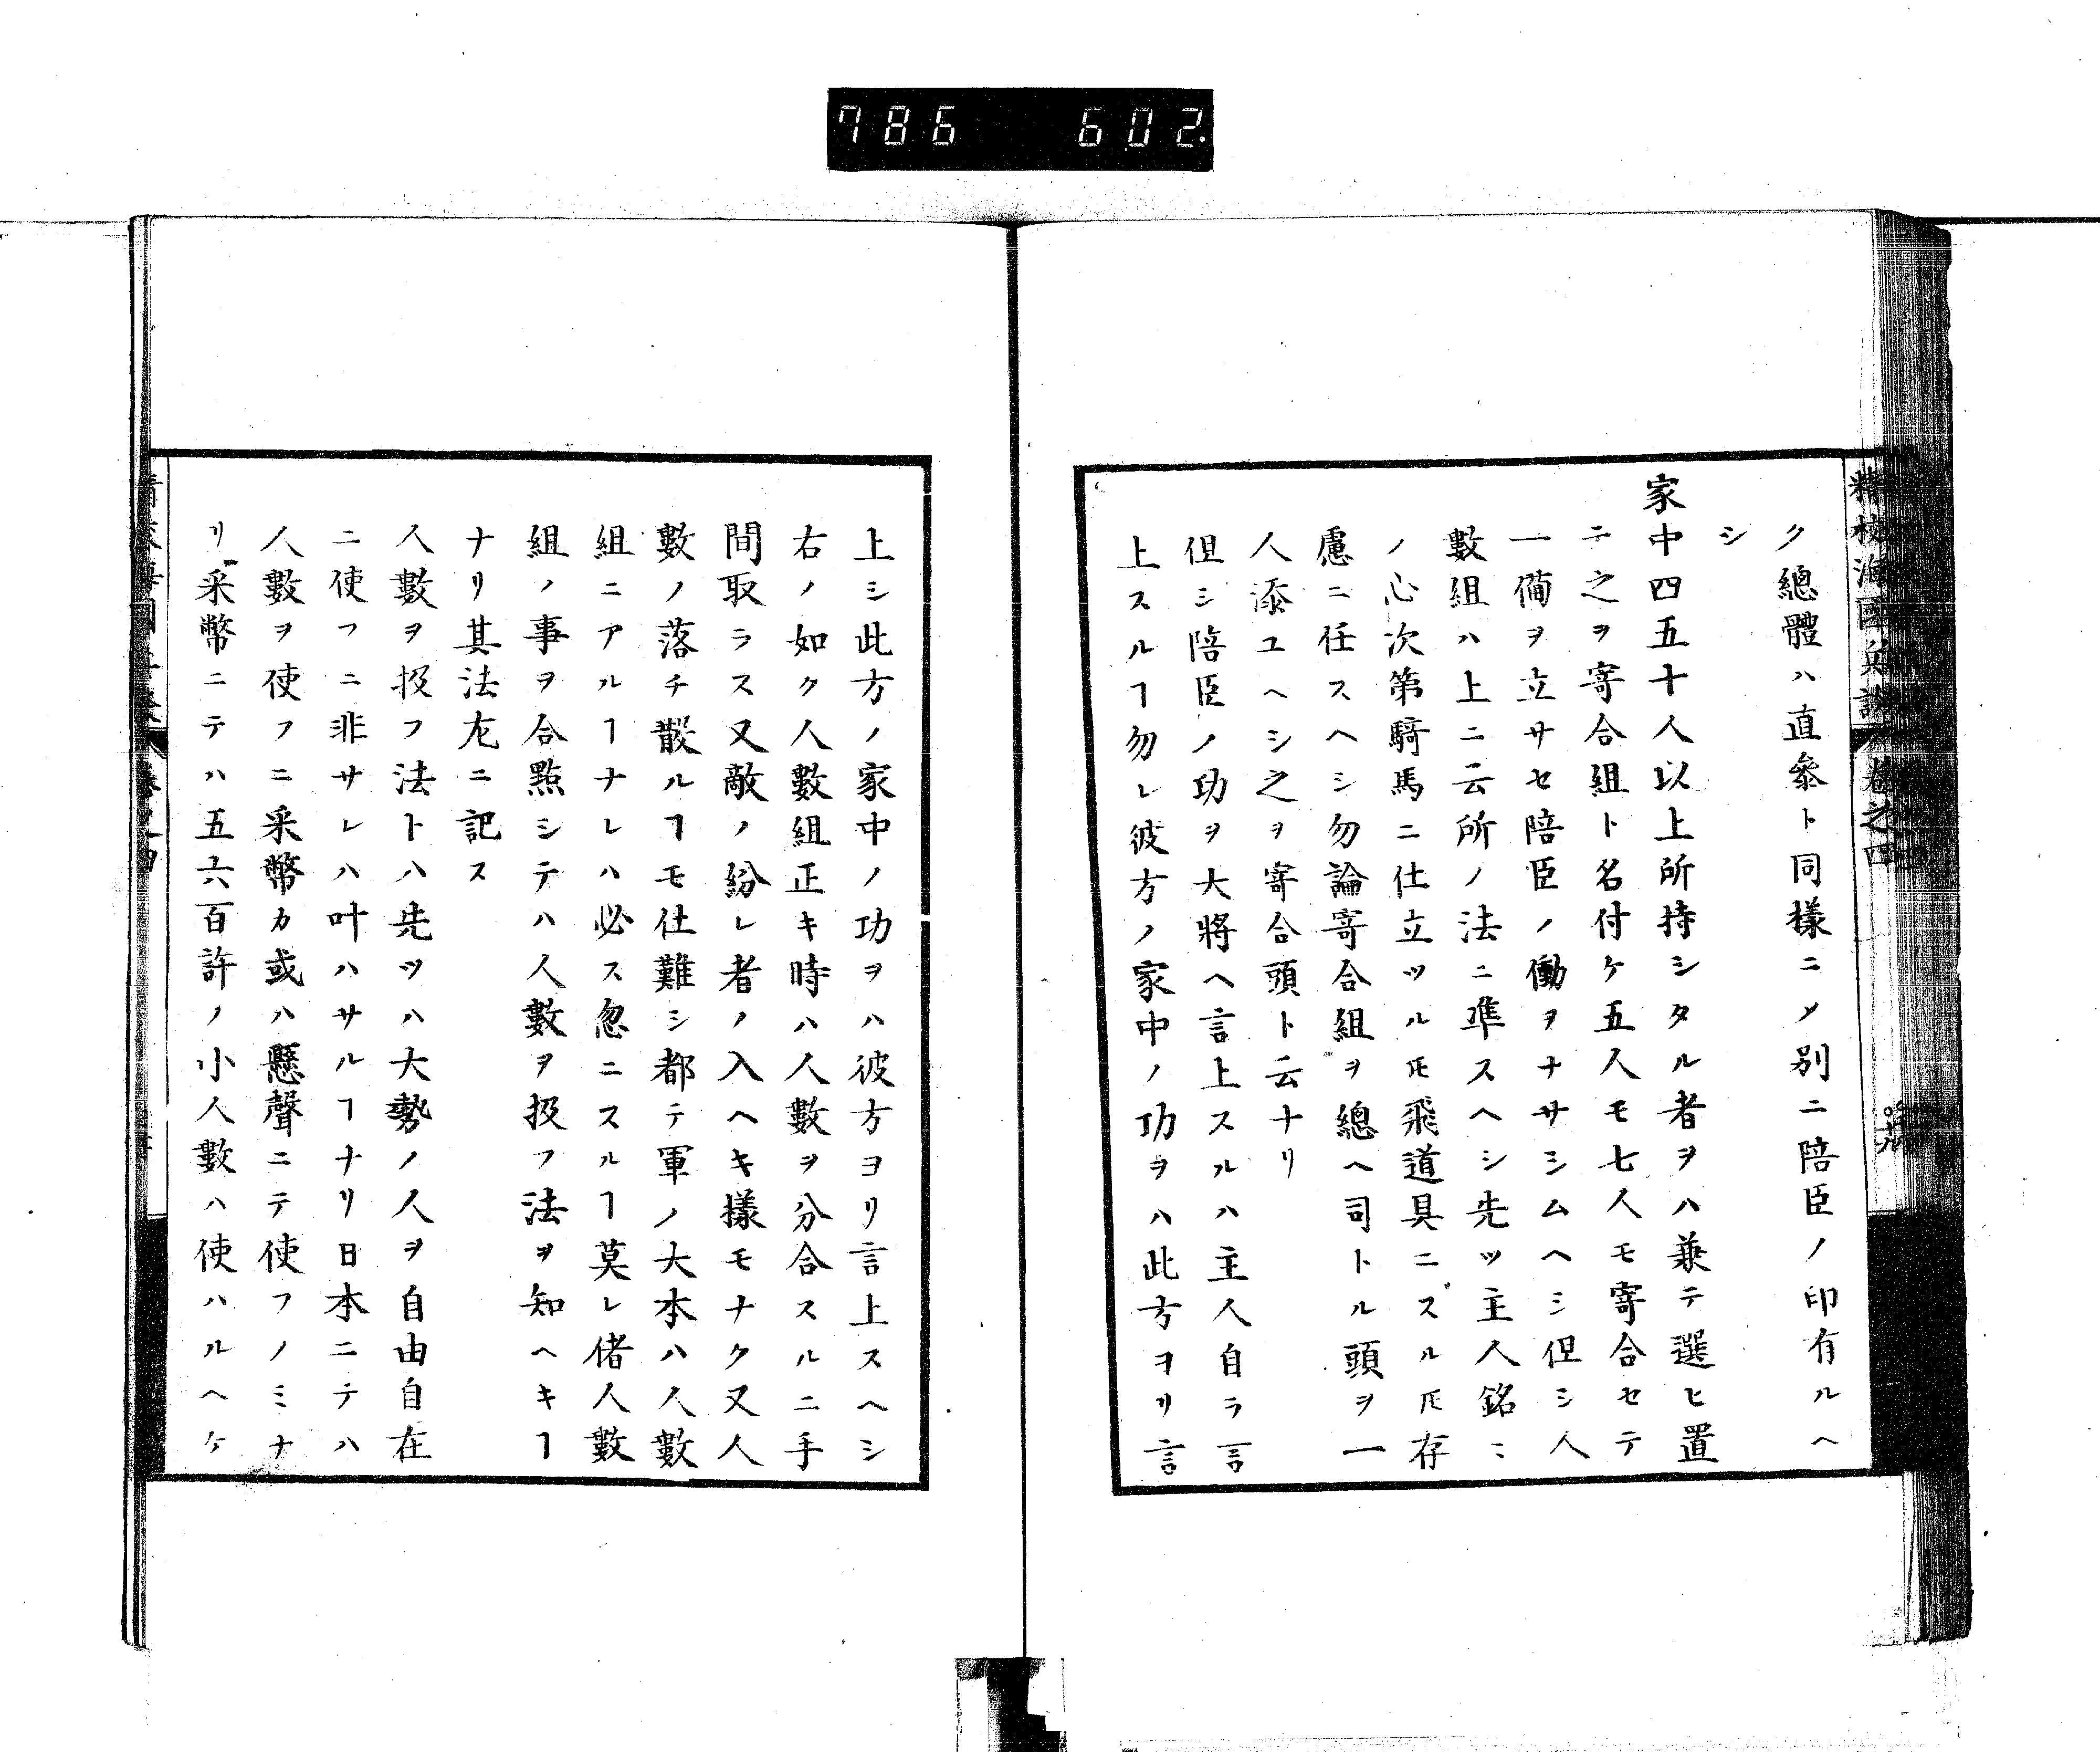 786 602
精校海國兵談 卷之四
ク總體ハ直參ト同樣ニメ別ニ陪臣ノ印有ルヘ
シ
家中四五十人以上所持シタル者ヲハ兼テ選ヒ置
テ之ヲ寄合組ト名付ケ五人モ七人モ寄合セテ
一備ヲ立サセ陪臣ノ働ヲナサシムヘシ但シ人
數組ハ上ニ云所ノ法ニ準スヘシ先ツ主人銘〻
ノ心次第騎馬ニ仕立ツルㇳモ飛道具ニスルㇳモ存
慮ニ任スヘシ勿論寄合組ヲ總ヘ司トル頭ヲ一
人添ユヘシ之ヲ寄合頭ト云ナリ
但シ陪臣ノ功ヲ大將ヘ言上スルハ主人自ラ言
上スルヿ勿レ彼方ノ家中ノ功ヲハ此方ヨリ言
上シ此方ノ家中ノ功ヲハ彼方ヨリ言上スヘシ
右ノ如ク人數組正キ時ハ人數ヲ分合スルニ手
間取ラス又敵ノ紛レ者ノ入ヘキ樣モナク又人
數ノ落チ散ルヿモ仕難シ都テ軍ノ大本ハ人數
組ニアルヿナレハ必ス忽ニスルヿ莫レ偖人數
組ノ事ヲ合點シテハ人數ヲ扱フ法ヲ知ヘキヿ
ナリ其法左ニ記ス
人數ヲ扱フ法トハ先ツハ大勢ノ人ヲ自由自在
ニ使フニ非サレハ叶ハサルヿナリ日本ニテハ
人數ヲ使フニ采幣カ或ハ懸聲ニテ使フノミナ
リ采幣ニテハ五六百許ノ小人數ハ使ハルヘケ